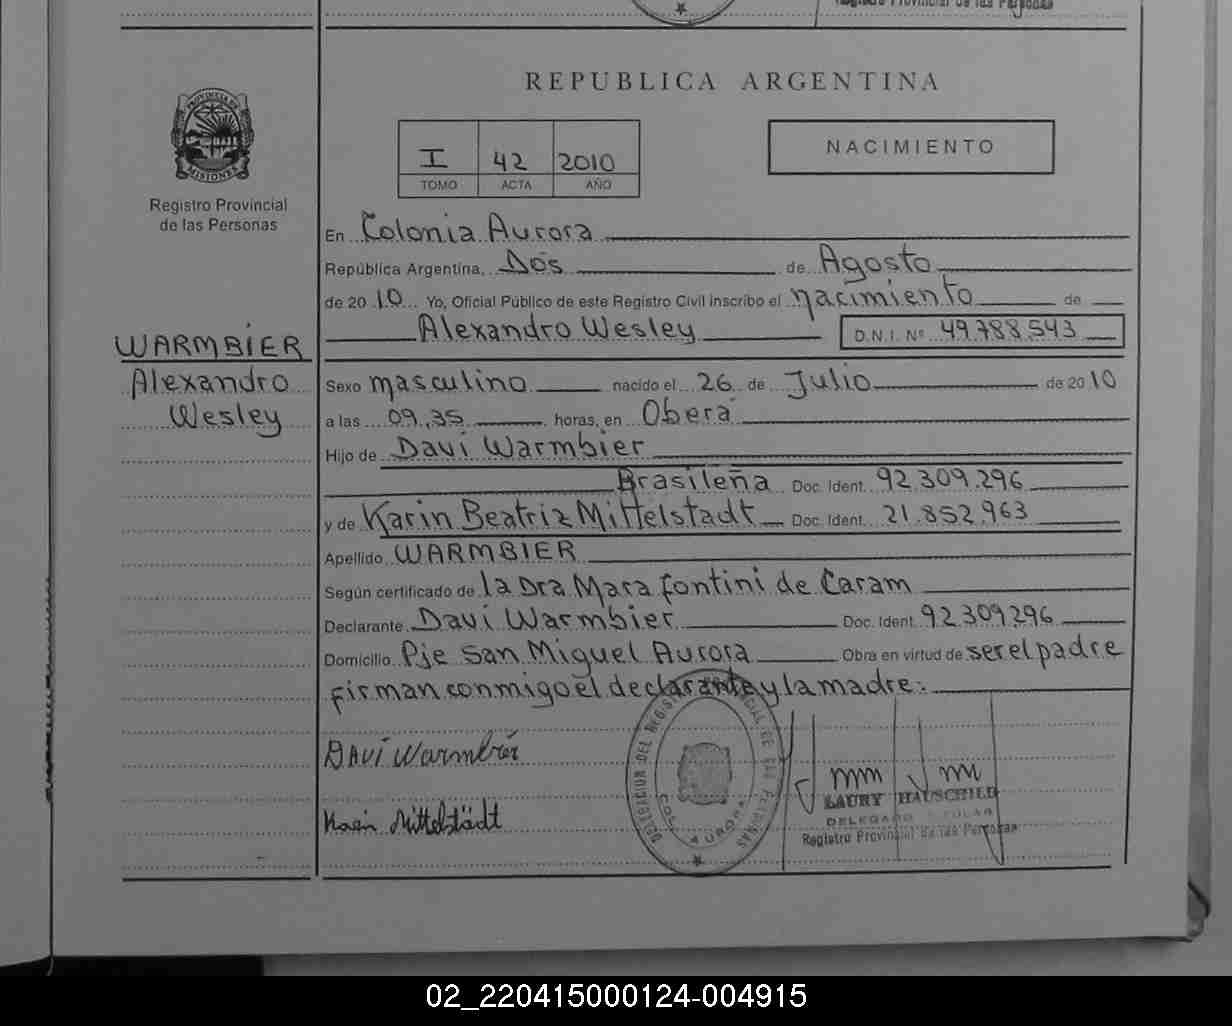 Registro Provincial de las Personas
REPUBLICA ARGENTINA
PROVINCIA DE
MISIONES
Registro Provincial
de las Personas
I 42 2010
TOMO ACTA AÑO
NACIMIENTO
En Colonia Aurora
República Argentina, Dos de Agosto
de 2010 Yo, Oficial Público de este Registro Civil inscribo el nacimiento de
Alexandro Wesley D.N.I. Nº 49.788.543
WARMBIER
Alexandro
Wesley
Sexo masculino nacido el 26 de Julio de 2010
a las 09,35 horas, en Oberá
Hijo de Davi Warmbier
Brasileña Doc. Ident. 92.309.296
y de Karin Beatriz Mittelstadt Doc. Ident. 21.852.963
Apellido WARMBIER
Según certificado de la Dra Mara Fontini de Caram
Declarante Davi Warmbier Doc. Ident. 92.309.296
Domicilio Pje San Miguel Aurora Obra en virtud de ser el padre
firman conmigo el declarante y la madre:
DAVi Warmbier
Karin Mittelstädt
DELEGACION DEL REGISTRO PROVINCIAL DE LAS PERSONAS
COL. AURORA
LAURY HAUSCHILD
DELEGADO TITULAR
Registro Provincial de las Personas
02_220415000124-004915